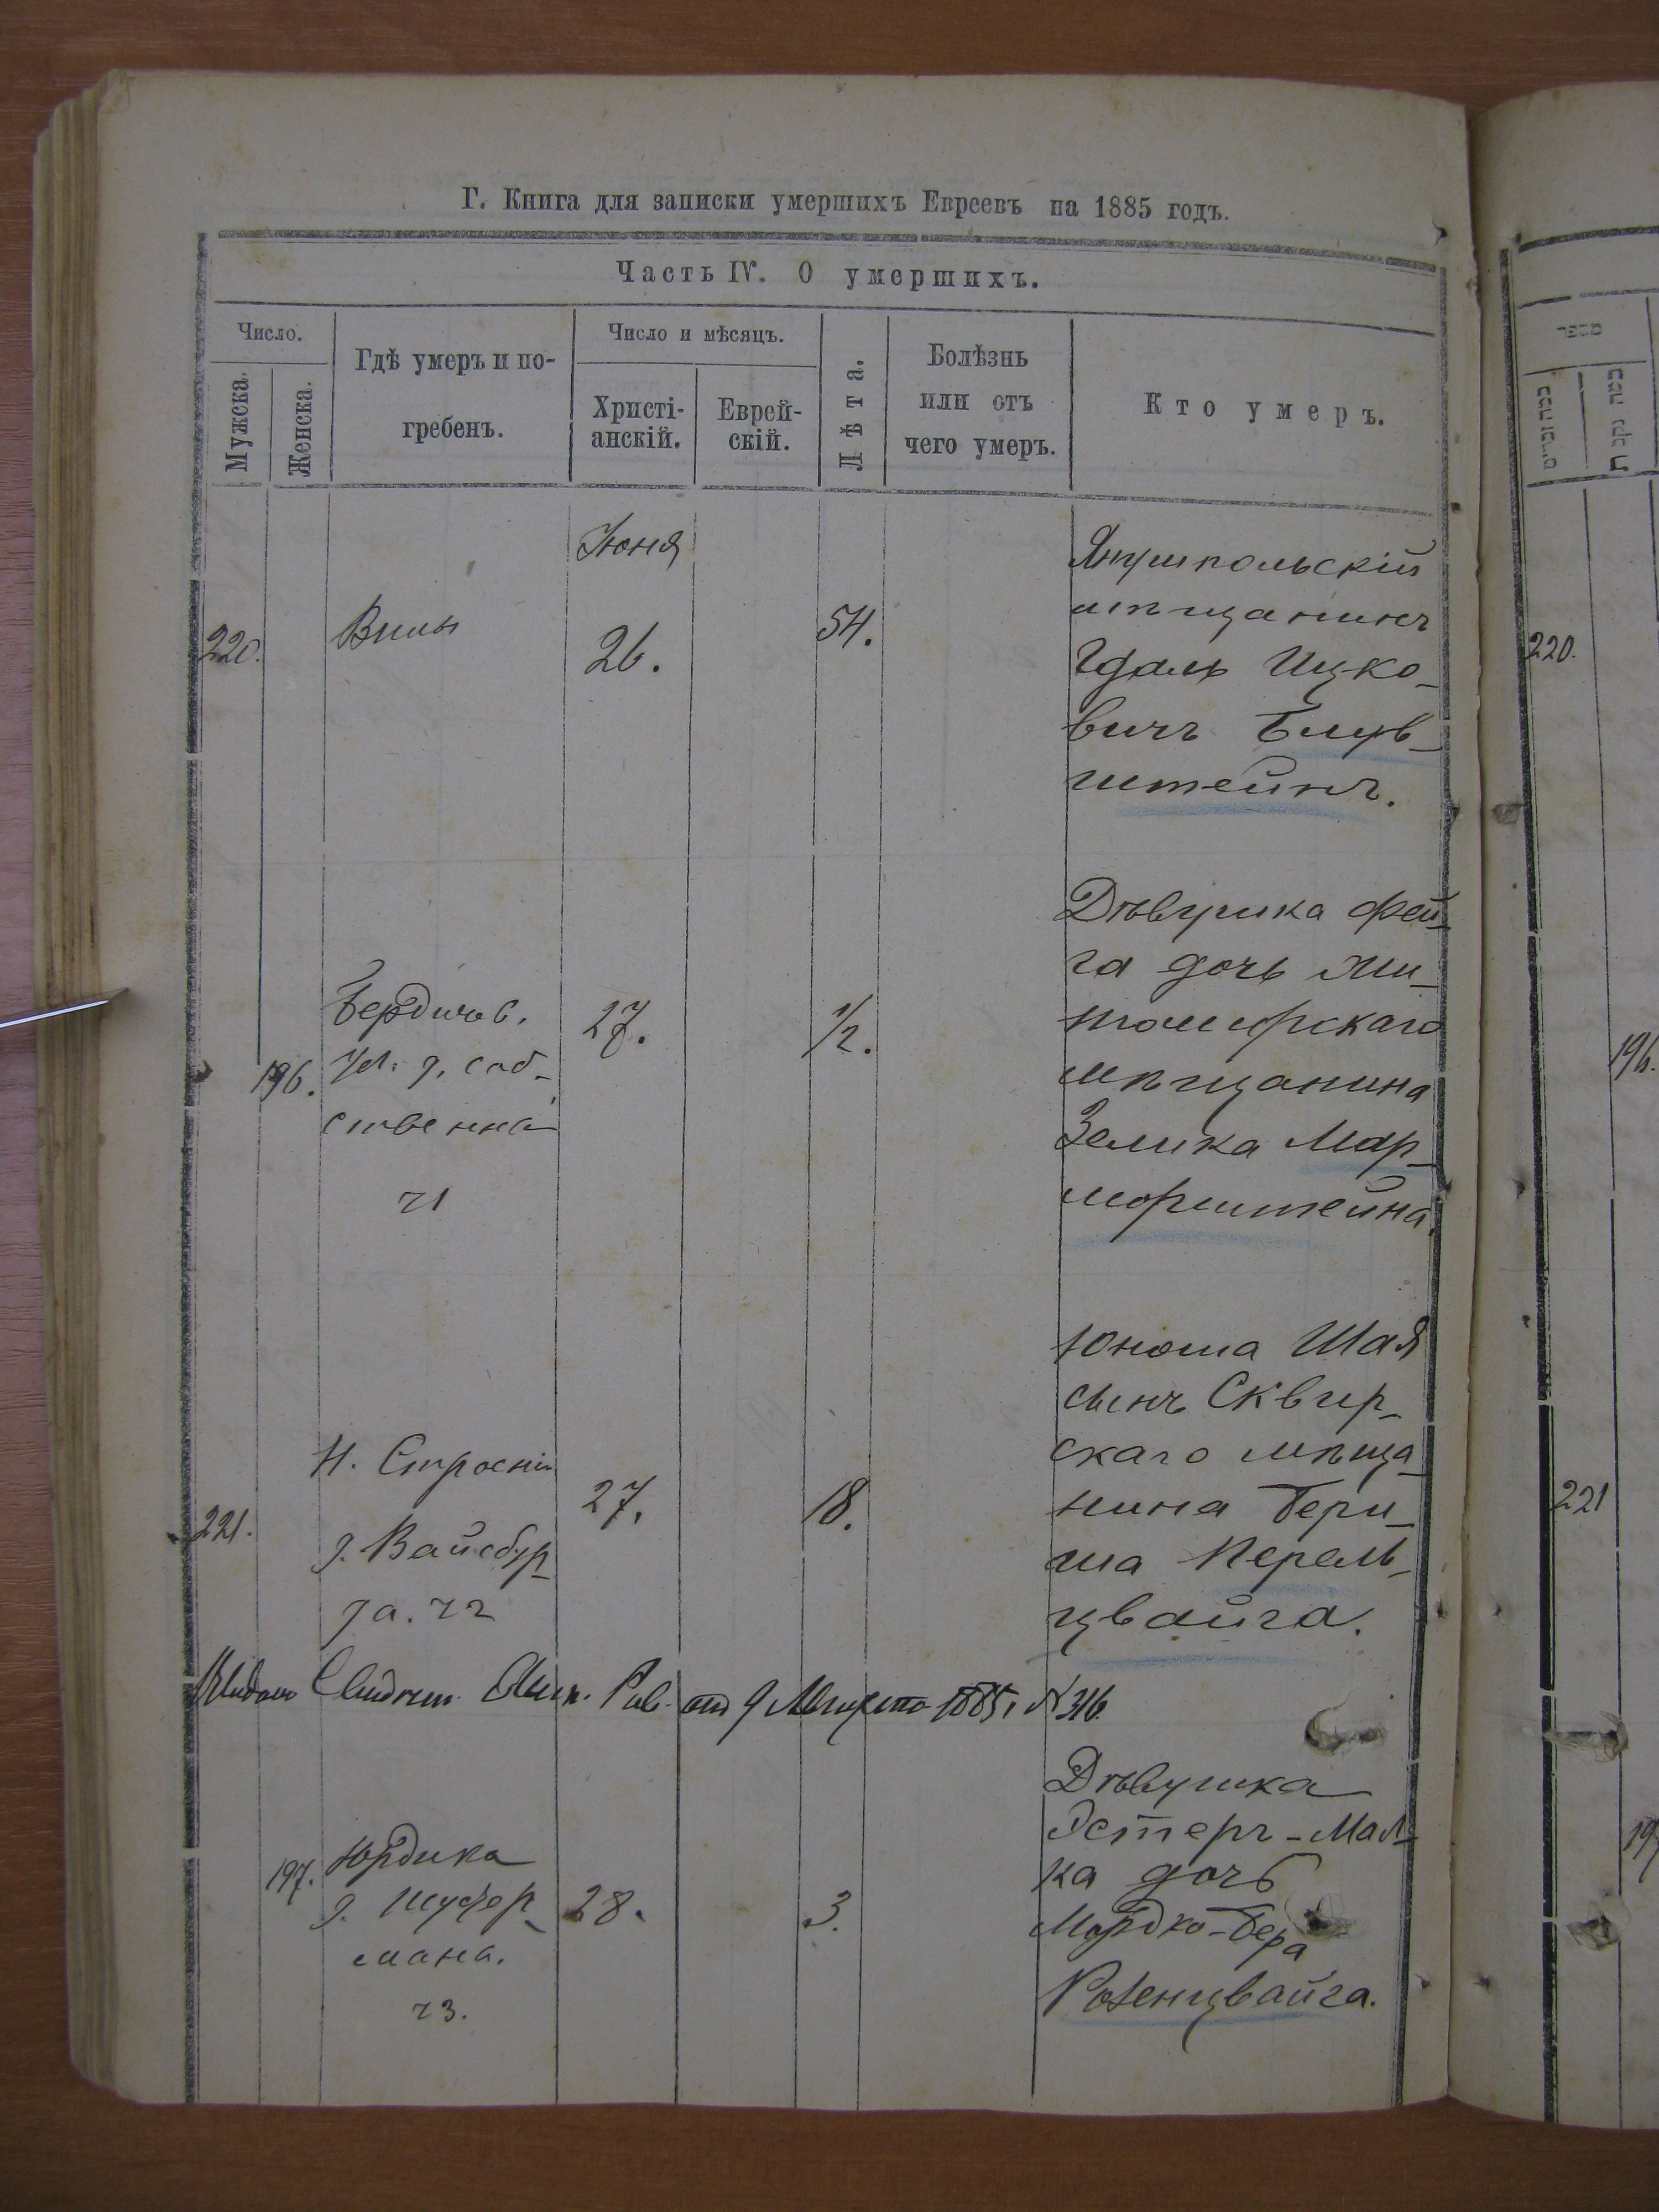 Г. Книга для записки умершихъ Евреевъ на 1885 годъ.
Часть IV. О умершихъ.
Число.
Мужска.
Женска.
Гдѣ умеръ и по-
гребенъ.
Число и мѣсяцъ.
Христі-
анскій.
Еврей-
скій.
Лѣта.
Болѣзнь
или отъ
чего умеръ.
Кто умеръ.
Іюня
220.
26.
54.
Янушпольскій
мѣщанинъ
Гдаль Ицко-
вичъ Блув-
штейнъ.
196.
Бердичов.
ул. д. соб-
ственный
71
27.
1/2.
Дѣвушка Фей-
га дочь Жи-
томирскаго
мѣщанина
Зелика Мар-
морштейна
221.
Н. Строеній
д. Вайсбур-
га. 72
27.
18.
Юноша Шая
сынъ Сквир-
скаго мѣща-
нина Бери-
ша Перель-
цвайга.
от 9 Августа 1885 г. № 316.
197.
Юрдика
д. Шуфер-
мана.
73.
28.
3.
Дѣвушка
Эстеръ-Мал-
ка дочь
Мордко-Бера
Розенцвайга.
220.
196.
221